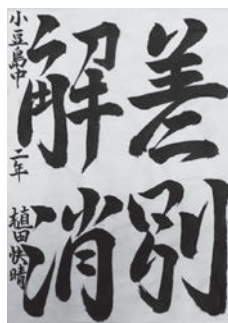 差別
解消
小豆島中 二年 植田快晴